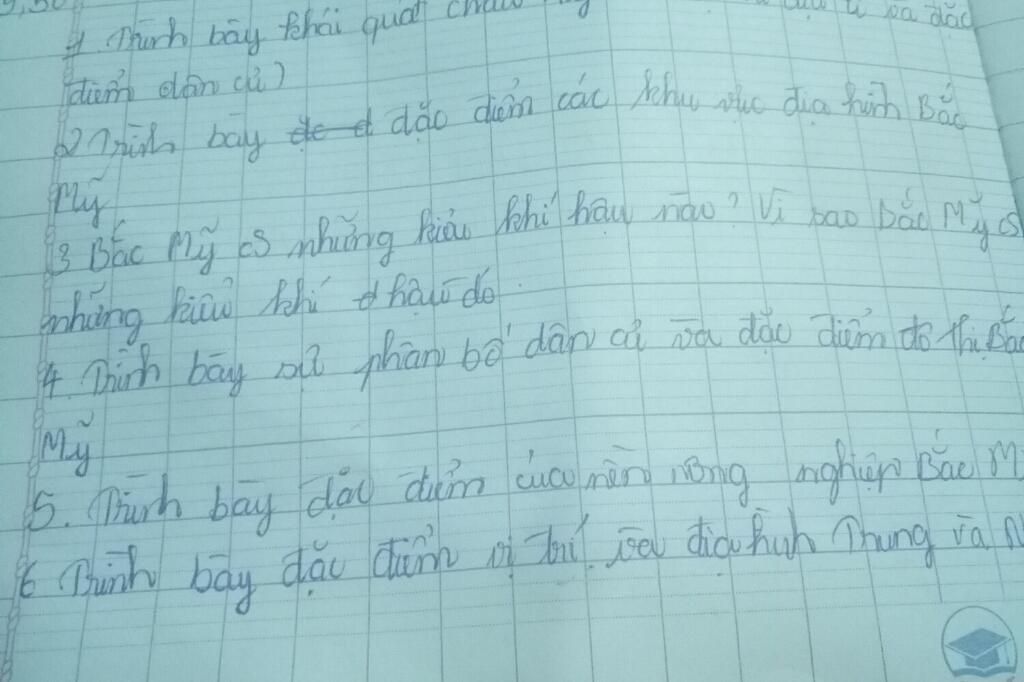 1. Trình bày khái quát châu và đặc
điểm dân cư)
2 Trình bày đặc điểm các khu vực địa hình Bắc
Mỹ
3 Bắc Mỹ có những kiểu khí hậu nào? Vì sao Bắc Mỹ có
những kiểu khí hậu đó.
4. Trình bày sự phân bố dân cư và đặc điểm đô thị Bắc
Mỹ
5. Trình bày đặc điểm của nền nông nghiệp Bắc M
6 Trình bày đặc điểm vị trí và địa hình Trung và N